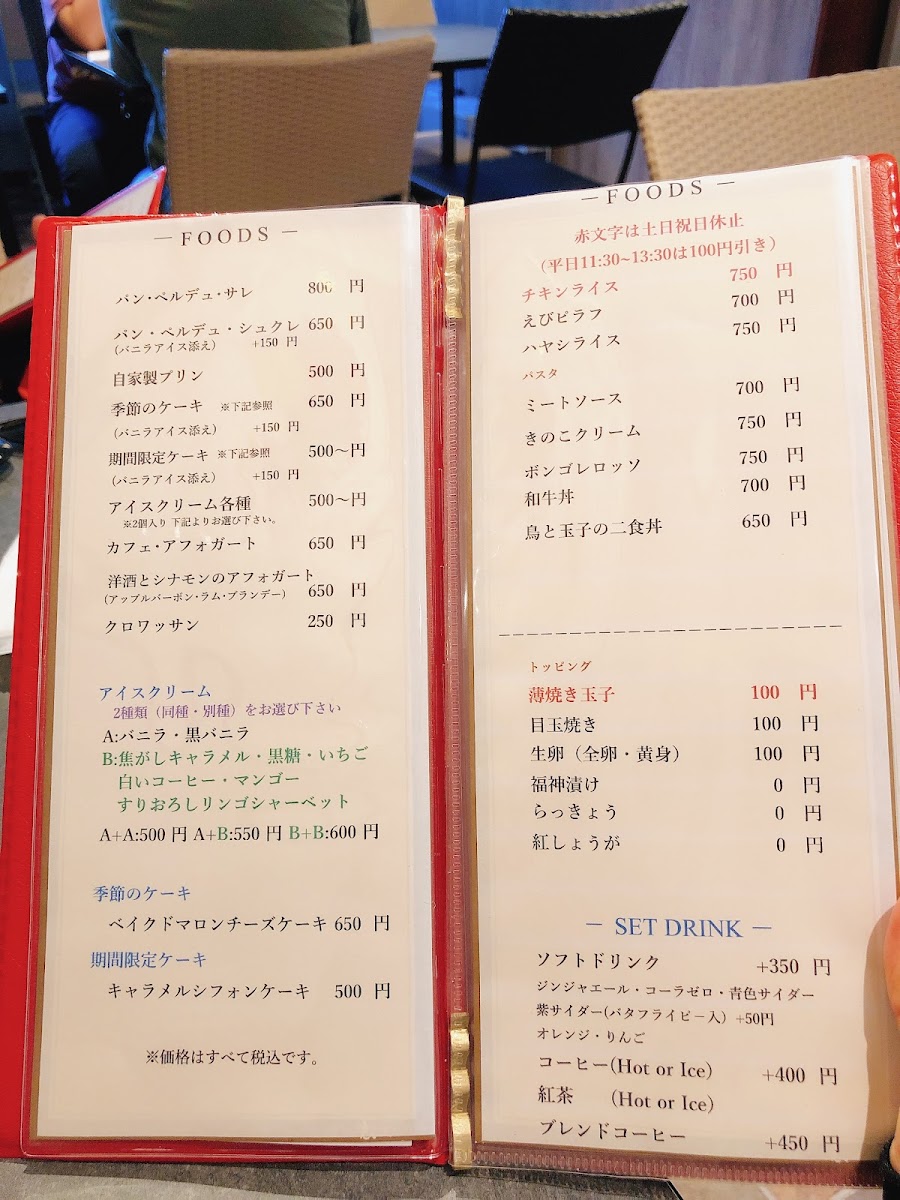 — FOODS —
パン・ペルデュ・サレ 800 円
パン・ペルデュ・シュクレ 650 円
(バニラアイス添え) +150 円
自家製プリン 500 円
季節のケーキ ※下記参照 650 円
(バニラアイス添え) +150 円
期間限定ケーキ ※下記参照 500〜円
(バニラアイス添え) +150 円
アイスクリーム各種 500〜円
※2個入り 下記よりお選び下さい。
カフェ・アフォガート 650 円
洋酒とシナモンのアフォガート
(アップルバーボン・ラム・ブランデー) 650 円
クロワッサン 250 円
アイスクリーム
2種類（同種・別種）をお選び下さい
A:バニラ・黒バニラ
B:焦がしキャラメル・黒糖・いちご
白いコーヒー・マンゴー
すりおろしリンゴシャーベット
A+A:500 円 A+B:550 円 B+B:600 円
季節のケーキ
ベイクドマロンチーズケーキ 650 円
期間限定ケーキ
キャラメルシフォンケーキ 500 円
※価格はすべて税込です。
— FOODS —
赤文字は土日祝日休止
（平日11:30~13:30は100円引き）
チキンライス 750 円
えびピラフ 700 円
ハヤシライス 750 円
パスタ
ミートソース 700 円
きのこクリーム 750 円
ボンゴレロッソ 750 円
和牛丼 700 円
鳥と玉子の二食丼 650 円
トッピング
薄焼き玉子 100 円
目玉焼き 100 円
生卵（全卵・黄身） 100 円
福神漬け 0 円
らっきょう 0 円
紅しょうが 0 円
— SET DRINK —
ソフトドリンク +350 円
ジンジャエール・コーラゼロ・青色サイダー
紫サイダー(バタフライピー入）+50円
オレンジ・りんご
コーヒー(Hot or Ice) +400 円
紅茶 (Hot or Ice)
ブレンドコーヒー +450 円